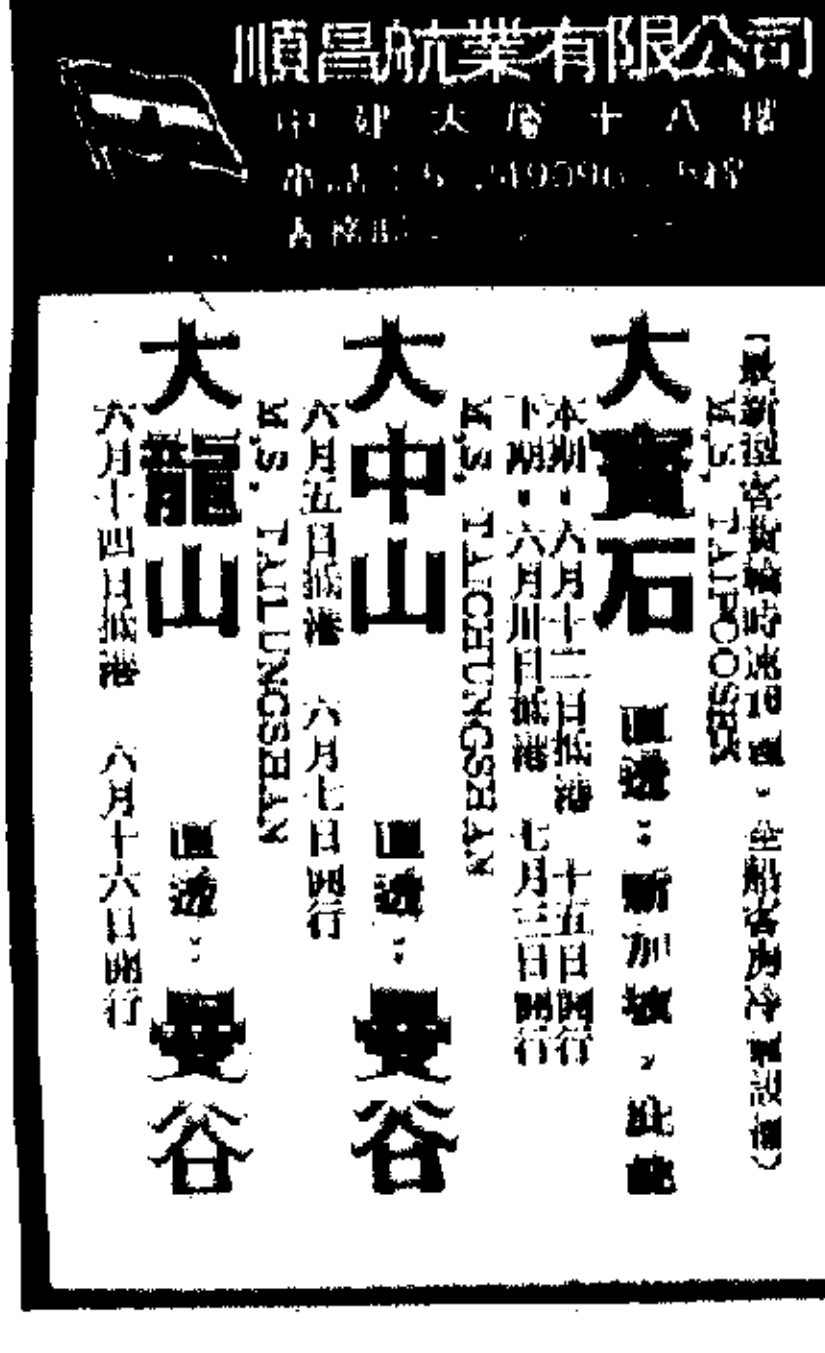 順昌航業有限公司
中建大廈十八樓
(最新型客貨輪時速18浬,全船客房冷氣設備)
M.S. TAIPOOSEK
大寶石 直透:新加坡,
本期:六月十二日抵港 十五日開行
下期:六月卅日抵港 七月三日開行
M.S. TAICHUNGSHAN
大中山 直透:曼谷
六月五日抵港 六月七日開行
M.S. TAILUNGSHAN
大龍山 直透:曼谷
六月十四日抵港 六月十六日開行